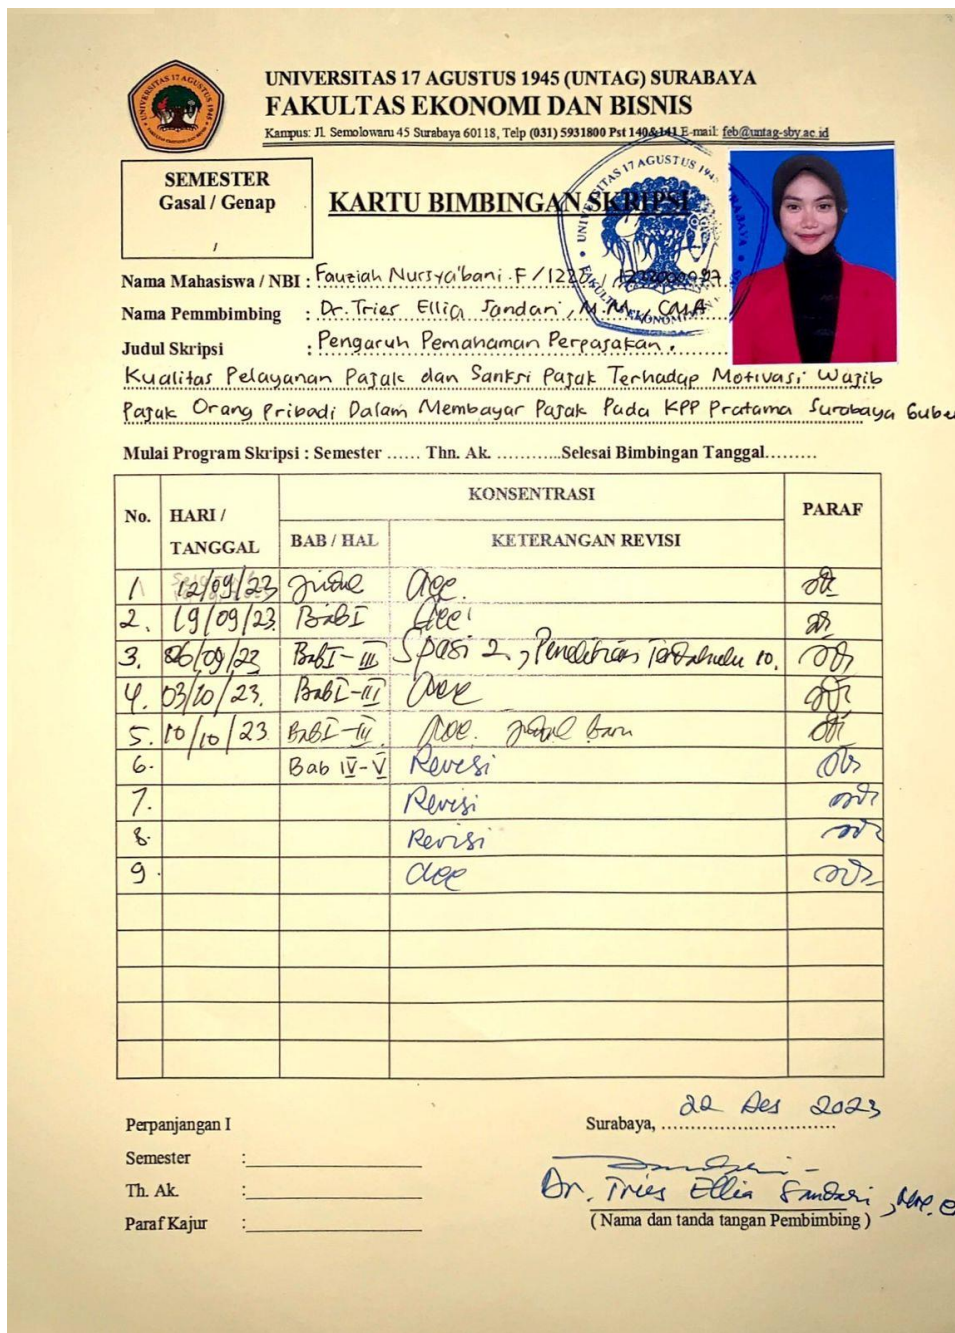 UNIVERSITAS 17 AGUSTUS 1945 (UNTAG) SURABAYA
FAKULTAS EKONOMI DAN BISNIS
Kampus: Jl. Semolowaru 45 Surabaya 60118, Telp (031) 5931800 Pst 140&141 E-mail: feb@untag-sby.ac.id
SEMESTER
Gasal / Genap
/
KARTU BIMBINGAN SKRIPSI
Nama Mahasiswa / NBI : Fauziah Nursya'bani.F /
Nama Pemmbimbing : Dr. Tries Ellia Sandari, M.M., CMA
Judul Skripsi : Pengaruh Pemahaman Perpajakan,
Kualitas Pelayanan Pajak dan Sanksi Pajak Terhadap Motivasi Wajib
Pajak Orang Pribadi Dalam Membayar Pajak Pada KPP Pratama Surabaya Gube
Mulai Program Skripsi : Semester ...... Thn. Ak. ............Selesai Bimbingan Tanggal.........
No. HARI / TANGGAL KONSENTRASI PARAF
BAB / HAL KETERANGAN REVISI
1 12/09/23 Judul Acc.
2. 19/09/23 Bab I Acc
3. 26/09/23 Bab I - III Spasi 2, Penelitian Terdahulu 10.
4. 03/10/23. Bab I - III Acc
5. 10/10/23 Bab I - III Acc. Judul baru
6. Bab IV - V Revisi
7. Revisi
8. Revisi
9. Acc
Perpanjangan I
Semester :
Th. Ak. :
Paraf Kajur :
Surabaya, 22 Des 2023
Dr. Tries Ellia Sandari
( Nama dan tanda tangan Pembimbing )